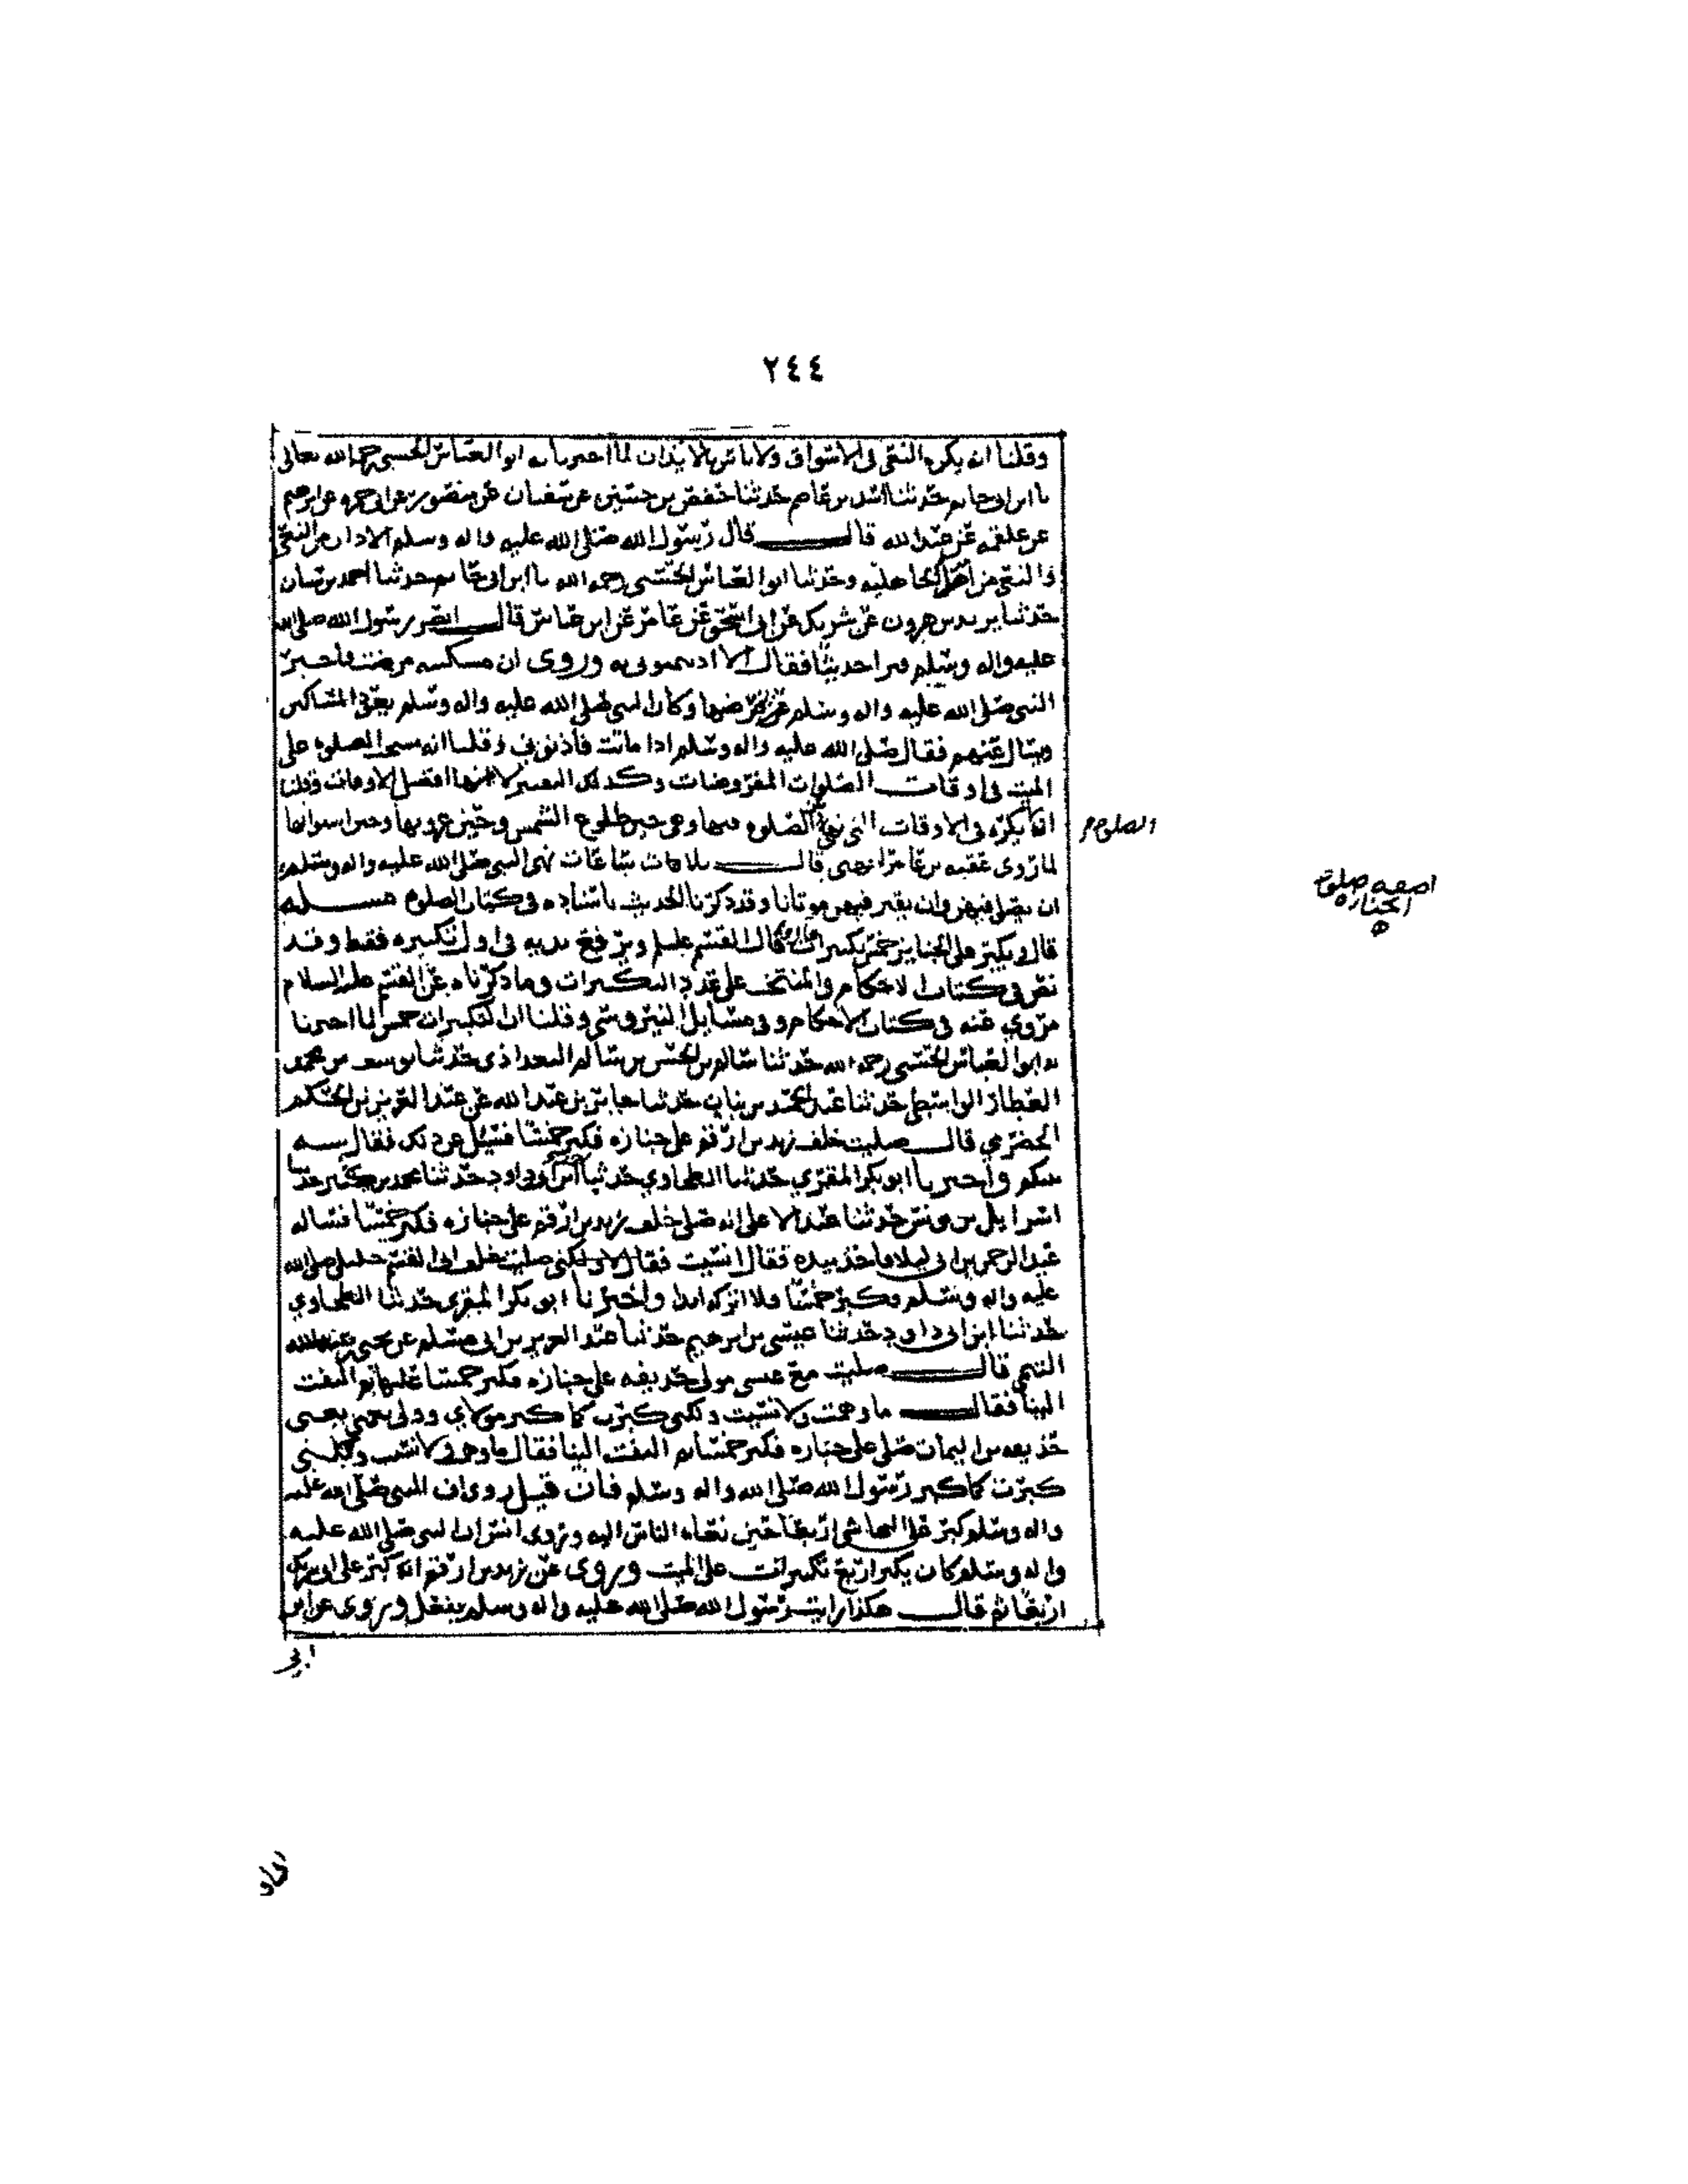 ٢٤٤
وقلنا انه يكره النعي في الاسواق ولا باس بالايذان لما اخبرنا به ابو العباس الحسني رحمه الله تعالى
نا ابن ابي حاتم حدثنا اسد بن عاصم حدثنا حفص بن حسين عن سفيان عن منصور عن ابي حمزه عن ابرهيم
عن علقمه عن عبد الله قال قال رسول الله صلى الله عليه واله وسلم الا اذان من النعي
والنعي من الجاهليه وحدثنا ابو العباس الحسني رحمه الله نا ابن ابي حاتم حدثنا احمد بن سنان
حدثنا يزيد بن هرون عن شريك عن ابي اسحق عن عامر عن ابن عباس قال ابصر رسول الله صلى الله
عليه واله وسلم قبرا حديثا فقال الا اذنتموني به وروي ان مسكينه مرضت فاخبر
النبي صلى الله عليه واله وسلم عن مرضها وكان النبي صلى الله عليه واله وسلم يعود المساكين
ويسال عنهم فقال صلى الله عليه واله وسلم اذا ماتت فاذنوني وقلنا انه يستحب الصلوه على
الميت في اوقات الصلوات المفروضات وكذلك لانها افضل الاوقات وقلنا
انه يكره في الاوقات التي نهي عن الصلوه فيها وهي حين طلوع الشمس وحين غروبها وحين استوائها
الصلوه
لما روى عقبه بن عامر الجهني قال ثلاث ساعات نهى النبي صلى الله عليه واله وسلم
ان نصلي فيهن وان نقبر فيهن موتانا وقد ذكرنا الحديث باسناده في كتاب الصلوه مسله
صلوة
الجنازه
قال ويكبر على الجنايز خمس تكبيرات قال القسم عليلم ويرفع يديه في اول تكبيره فقط وقد
نص في كتاب الاحكام والمنتخب على عدد التكبيرات وما ذكرناه عن القسم عليه السلام
مروي عنه في كتاب الاحكام وفي مسايل النيروسي وقلنا ان التكبيرات خمس لما اخبرنا
به ابو العباس الحسني رحمه الله حدثنا سالم بن الحسن بن سالم البغداذي حدثنا يوسف بن محمد
العطار الواسطي حدثنا عبد الحميد بن بيان حدثنا جابر بن عبد الله عن عبد العزيز بن الحكم
الحضرمي قال صليت خلف زيد بن ارقم على جنازه فكبر خمسا فسئل عن ذلك فقال سنه
نبيكم واخبرنا ابو بكر المقري حدثنا الطحاوي حدثنا ابن ابي داود حدثنا محمد بن كثير حدثنا
اسرايل بن يونس حدثنا عبد الاعلى انه صلى خلف زيد بن ارقم على جنازه فكبر خمسا فساله
عبد الرحمن بن ابي ليلا فاخذ بيده فقال انسيت فقال لا ولكني صليت خلف ابي القسم خليلي صلى الله
عليه واله وسلم فكبر خمسا ولا اتركه ابدا واخبرنا ابو بكر المقري حدثنا الطحاوي
حدثنا ابن ابي داود حدثنا عيسى بن ابرهيم حدثنا عبد العزيز بن ابي مسلم عن يحيى بن عبد الله
التيمي قال صليت مع عيسى مولى حذيفه على جنازه فكبر خمسا عليها ثم التفت
الينا فقال ما وهمت ولا نسيت ولكني كبرت كما كبر مولاي وولي نعمتي يعني
حذيفه بن اليمان صلى على جنازه فكبر خمسا ثم التفت الينا فقال ما وهمت ولا نسيت ولكنني
كبرت كما كبر رسول الله صلى الله واله وسلم فان قيل روي ان النبي صلى الله عليه
واله وسلم كبر على النجاشي اربعا حين نعاه الناس اليه وروى انس ان النبي صلى الله عليه
واله وسلم كان يكبر اربع تكبيرات على الميت وروي عن زيد بن ارقم انه كبر على
اربعا ثم قال هكذا رايت رسول الله صلى الله عليه واله وسلم يفعل وروى عن ابن